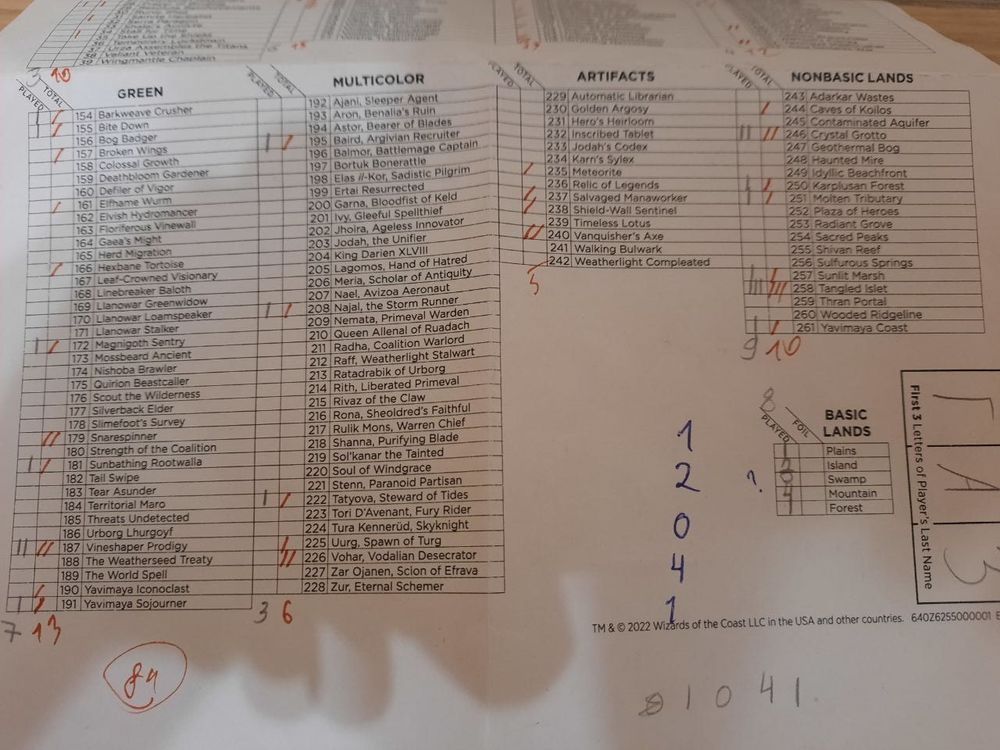 39 Wingmantle Chaplain
10
PLAYED TOTAL GREEN
154 Barkweave Crusher
155 Bite Down
156 Bog Badger
157 Broken Wings
158 Colossal Growth
159 Deathbloom Gardener
160 Defiler of Vigor
161 Elfhame Wurm
162 Elvish Hydromancer
163 Floriferous Vinewall
164 Gaea's Might
165 Herd Migration
166 Hexbane Tortoise
167 Leaf-Crowned Visionary
168 Linebreaker Baloth
169 Llanowar Greenwidow
170 Llanowar Loamspeaker
171 Llanowar Stalker
172 Magnigoth Sentry
173 Mossbeard Ancient
174 Nishoba Brawler
175 Quirion Beastcaller
176 Scout the Wilderness
177 Silverback Elder
178 Slimefoot's Survey
179 Snarespinner
180 Strength of the Coalition
181 Sunbathing Rootwalla
182 Tail Swipe
183 Tear Asunder
184 Territorial Maro
185 Threats Undetected
186 Urborg Lhurgoyf
187 Vineshaper Prodigy
188 The Weatherseed Treaty
189 The World Spell
190 Yavimaya Iconoclast
191 Yavimaya Sojourner
7 13
84
PLAYED TOTAL MULTICOLOR
192 Ajani, Sleeper Agent
193 Aron, Benalia's Ruin
194 Astor, Bearer of Blades
195 Baird, Argivian Recruiter
196 Balmor, Battlemage Captain
197 Bortuk Bonerattle
198 Elas il-Kor, Sadistic Pilgrim
199 Ertai Resurrected
200 Garna, Bloodfist of Keld
201 Ivy, Gleeful Spellthief
202 Jhoira, Ageless Innovator
203 Jodah, the Unifier
204 King Darien XLVIII
205 Lagomos, Hand of Hatred
206 Meria, Scholar of Antiquity
207 Nael, Avizoa Aeronaut
208 Najal, the Storm Runner
209 Nemata, Primeval Warden
210 Queen Allenal of Ruadach
211 Radha, Coalition Warlord
212 Raff, Weatherlight Stalwart
213 Ratadrabik of Urborg
214 Rith, Liberated Primeval
215 Rivaz of the Claw
216 Rona, Sheoldred's Faithful
217 Rulik Mons, Warren Chief
218 Shanna, Purifying Blade
219 Sol'kanar the Tainted
220 Soul of Windgrace
221 Stenn, Paranoid Partisan
222 Tatyova, Steward of Tides
223 Tori D'Avenant, Fury Rider
224 Tura Kennerüd, Skyknight
225 Uurg, Spawn of Turg
226 Vohar, Vodalian Desecrator
227 Zar Ojanen, Scion of Efrava
228 Zur, Eternal Schemer
3 6
PLAYED TOTAL ARTIFACTS
229 Automatic Librarian
230 Golden Argosy
231 Hero's Heirloom
232 Inscribed Tablet
233 Jodah's Codex
234 Karn's Sylex
235 Meteorite
236 Relic of Legends
237 Salvaged Manaworker
238 Shield-Wall Sentinel
239 Timeless Lotus
240 Vanquisher's Axe
241 Walking Bulwark
242 Weatherlight Compleated
5
PLAYED TOTAL NONBASIC LANDS
243 Adarkar Wastes
244 Caves of Koilos
245 Contaminated Aquifer
246 Crystal Grotto
247 Geothermal Bog
248 Haunted Mire
249 Idyllic Beachfront
250 Karplusan Forest
251 Molten Tributary
252 Plaza of Heroes
253 Radiant Grove
254 Sacred Peaks
255 Shivan Reef
256 Sulfurous Springs
257 Sunlit Marsh
258 Tangled Islet
259 Thran Portal
260 Wooded Ridgeline
261 Yavimaya Coast
9 10
8
PLAYED FOIL BASIC LANDS
Plains
Island
Swamp
Mountain
Forest
1
2
0
4
1
?
First 3 Letters of Player's Last Name
TM & © 2022 Wizards of the Coast LLC in the USA and other countries. 640Z6255000001 E
1 0 4 1